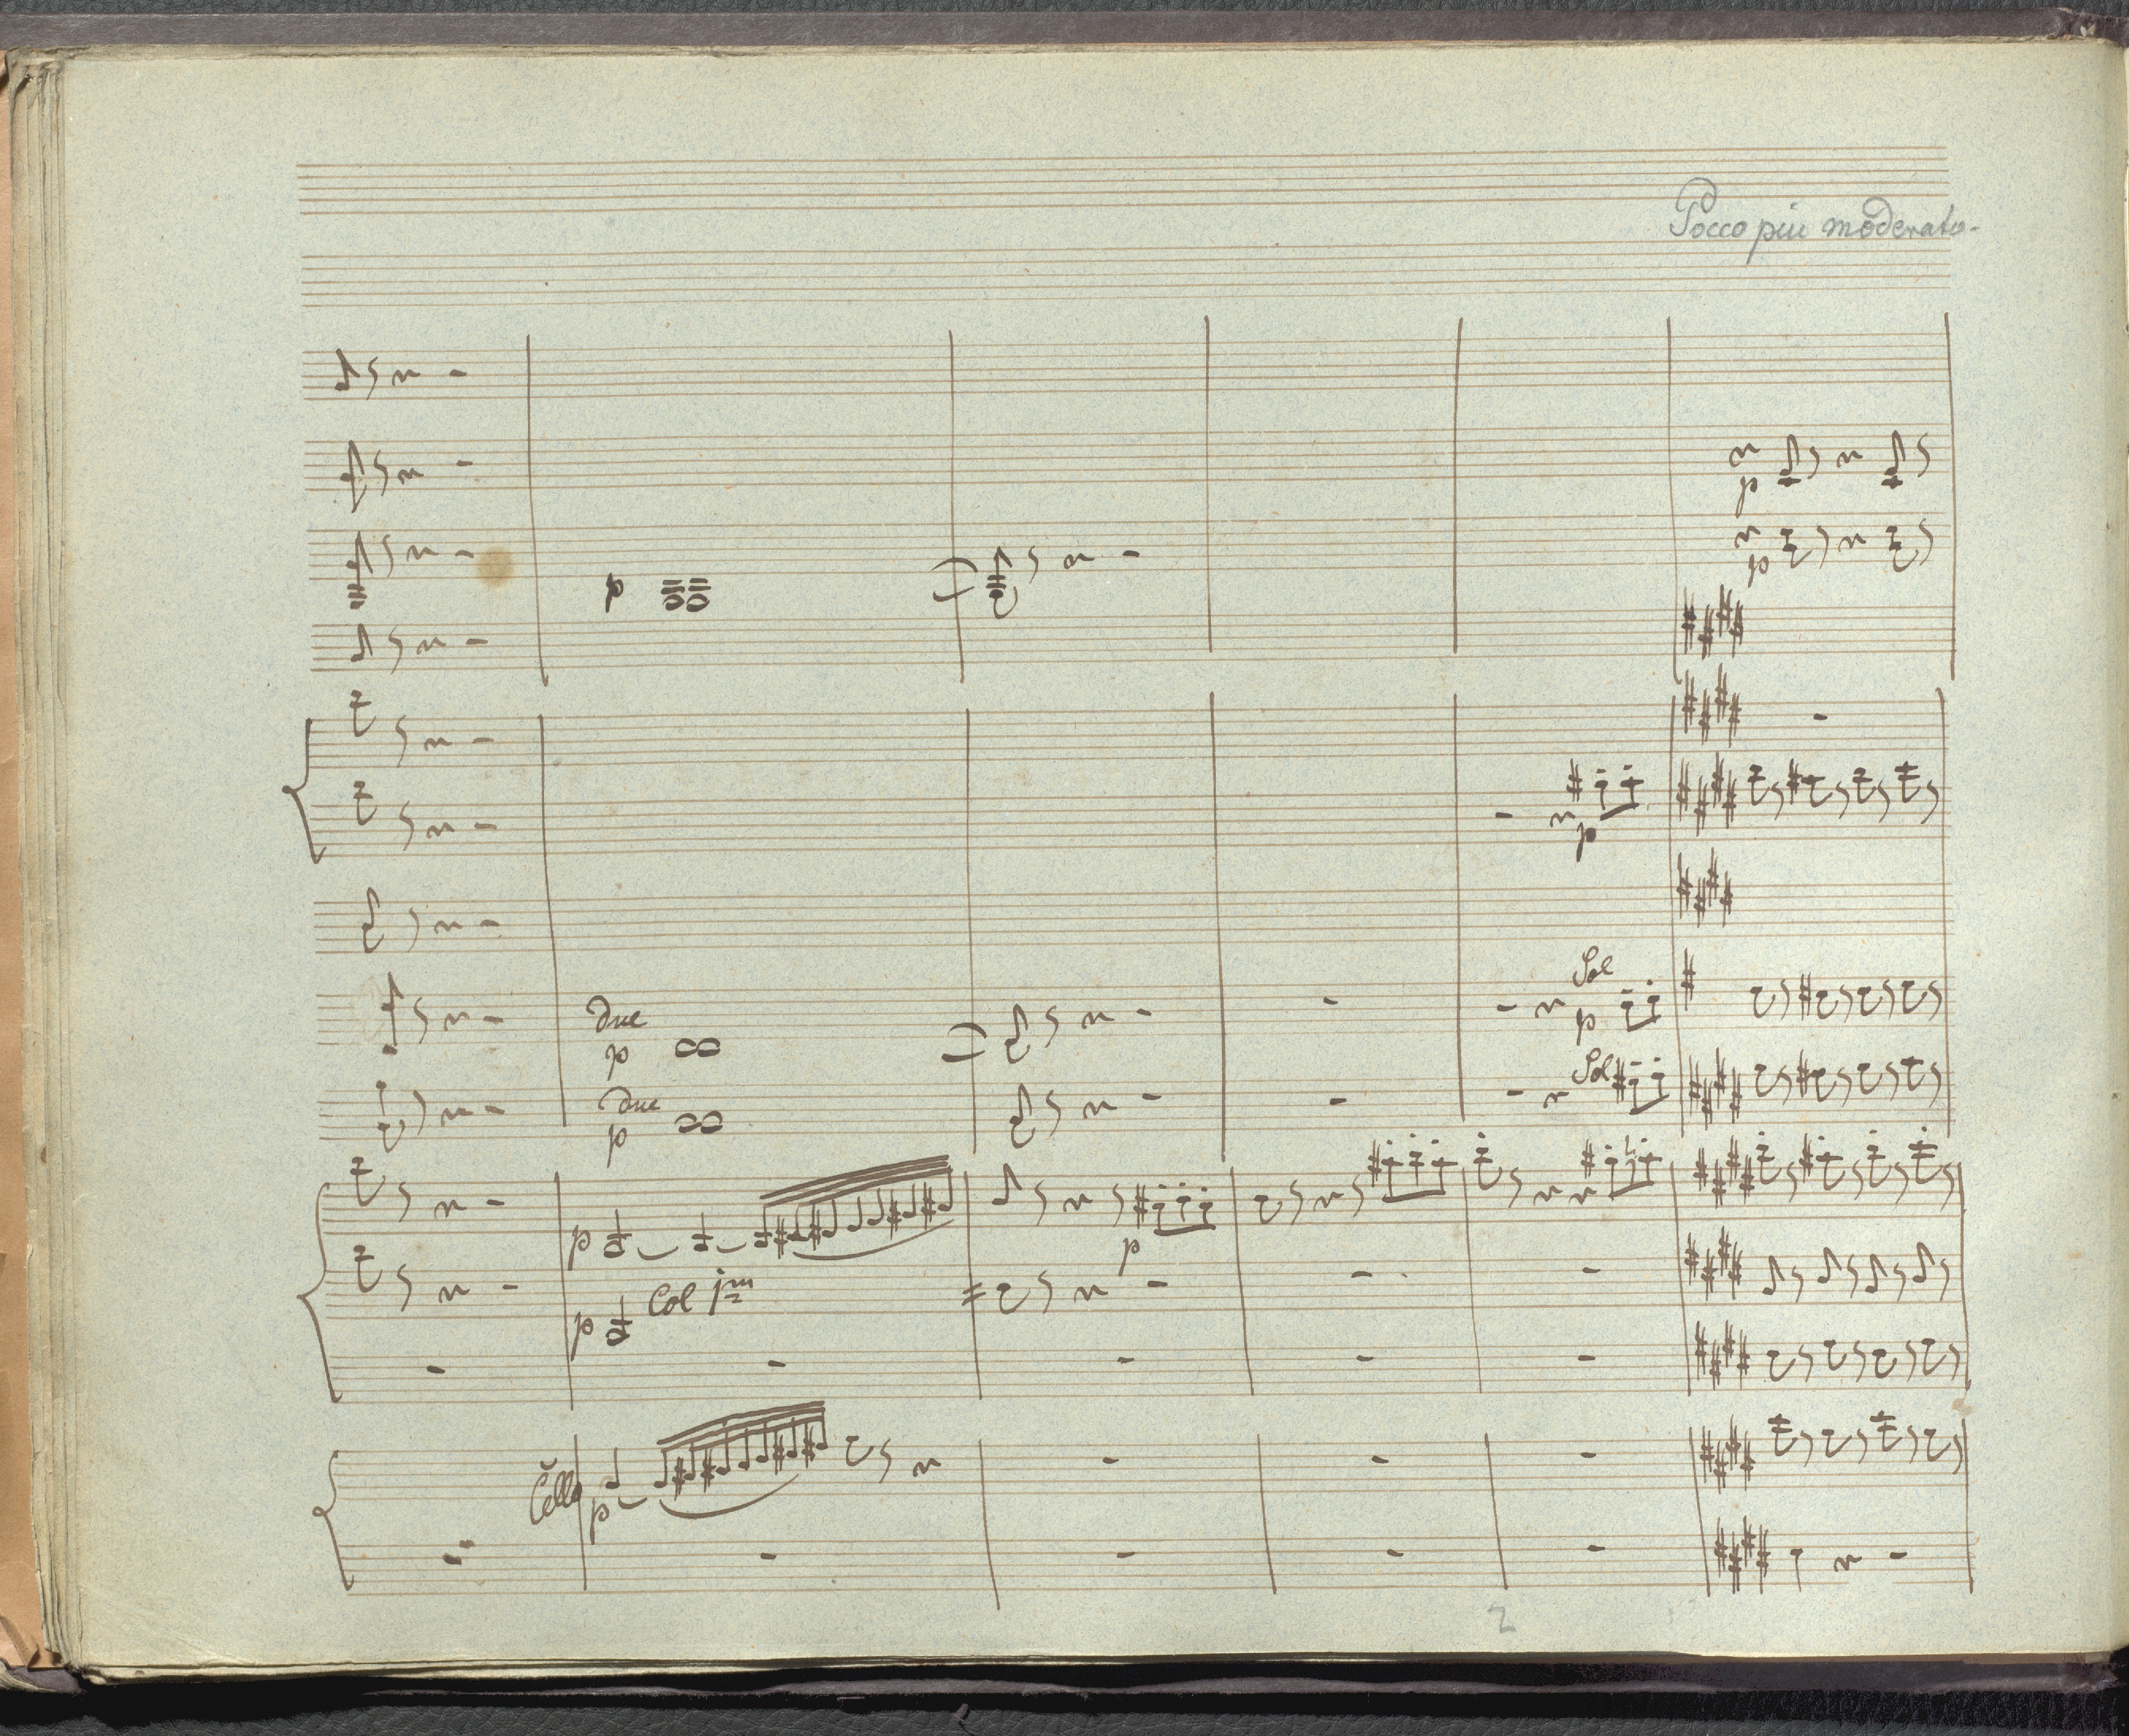 Pocco piu moderato.
p
p
p
p
Sol
due
p
p
Sol
due
p
p
p
Col 1mo
p
Cello
p
2